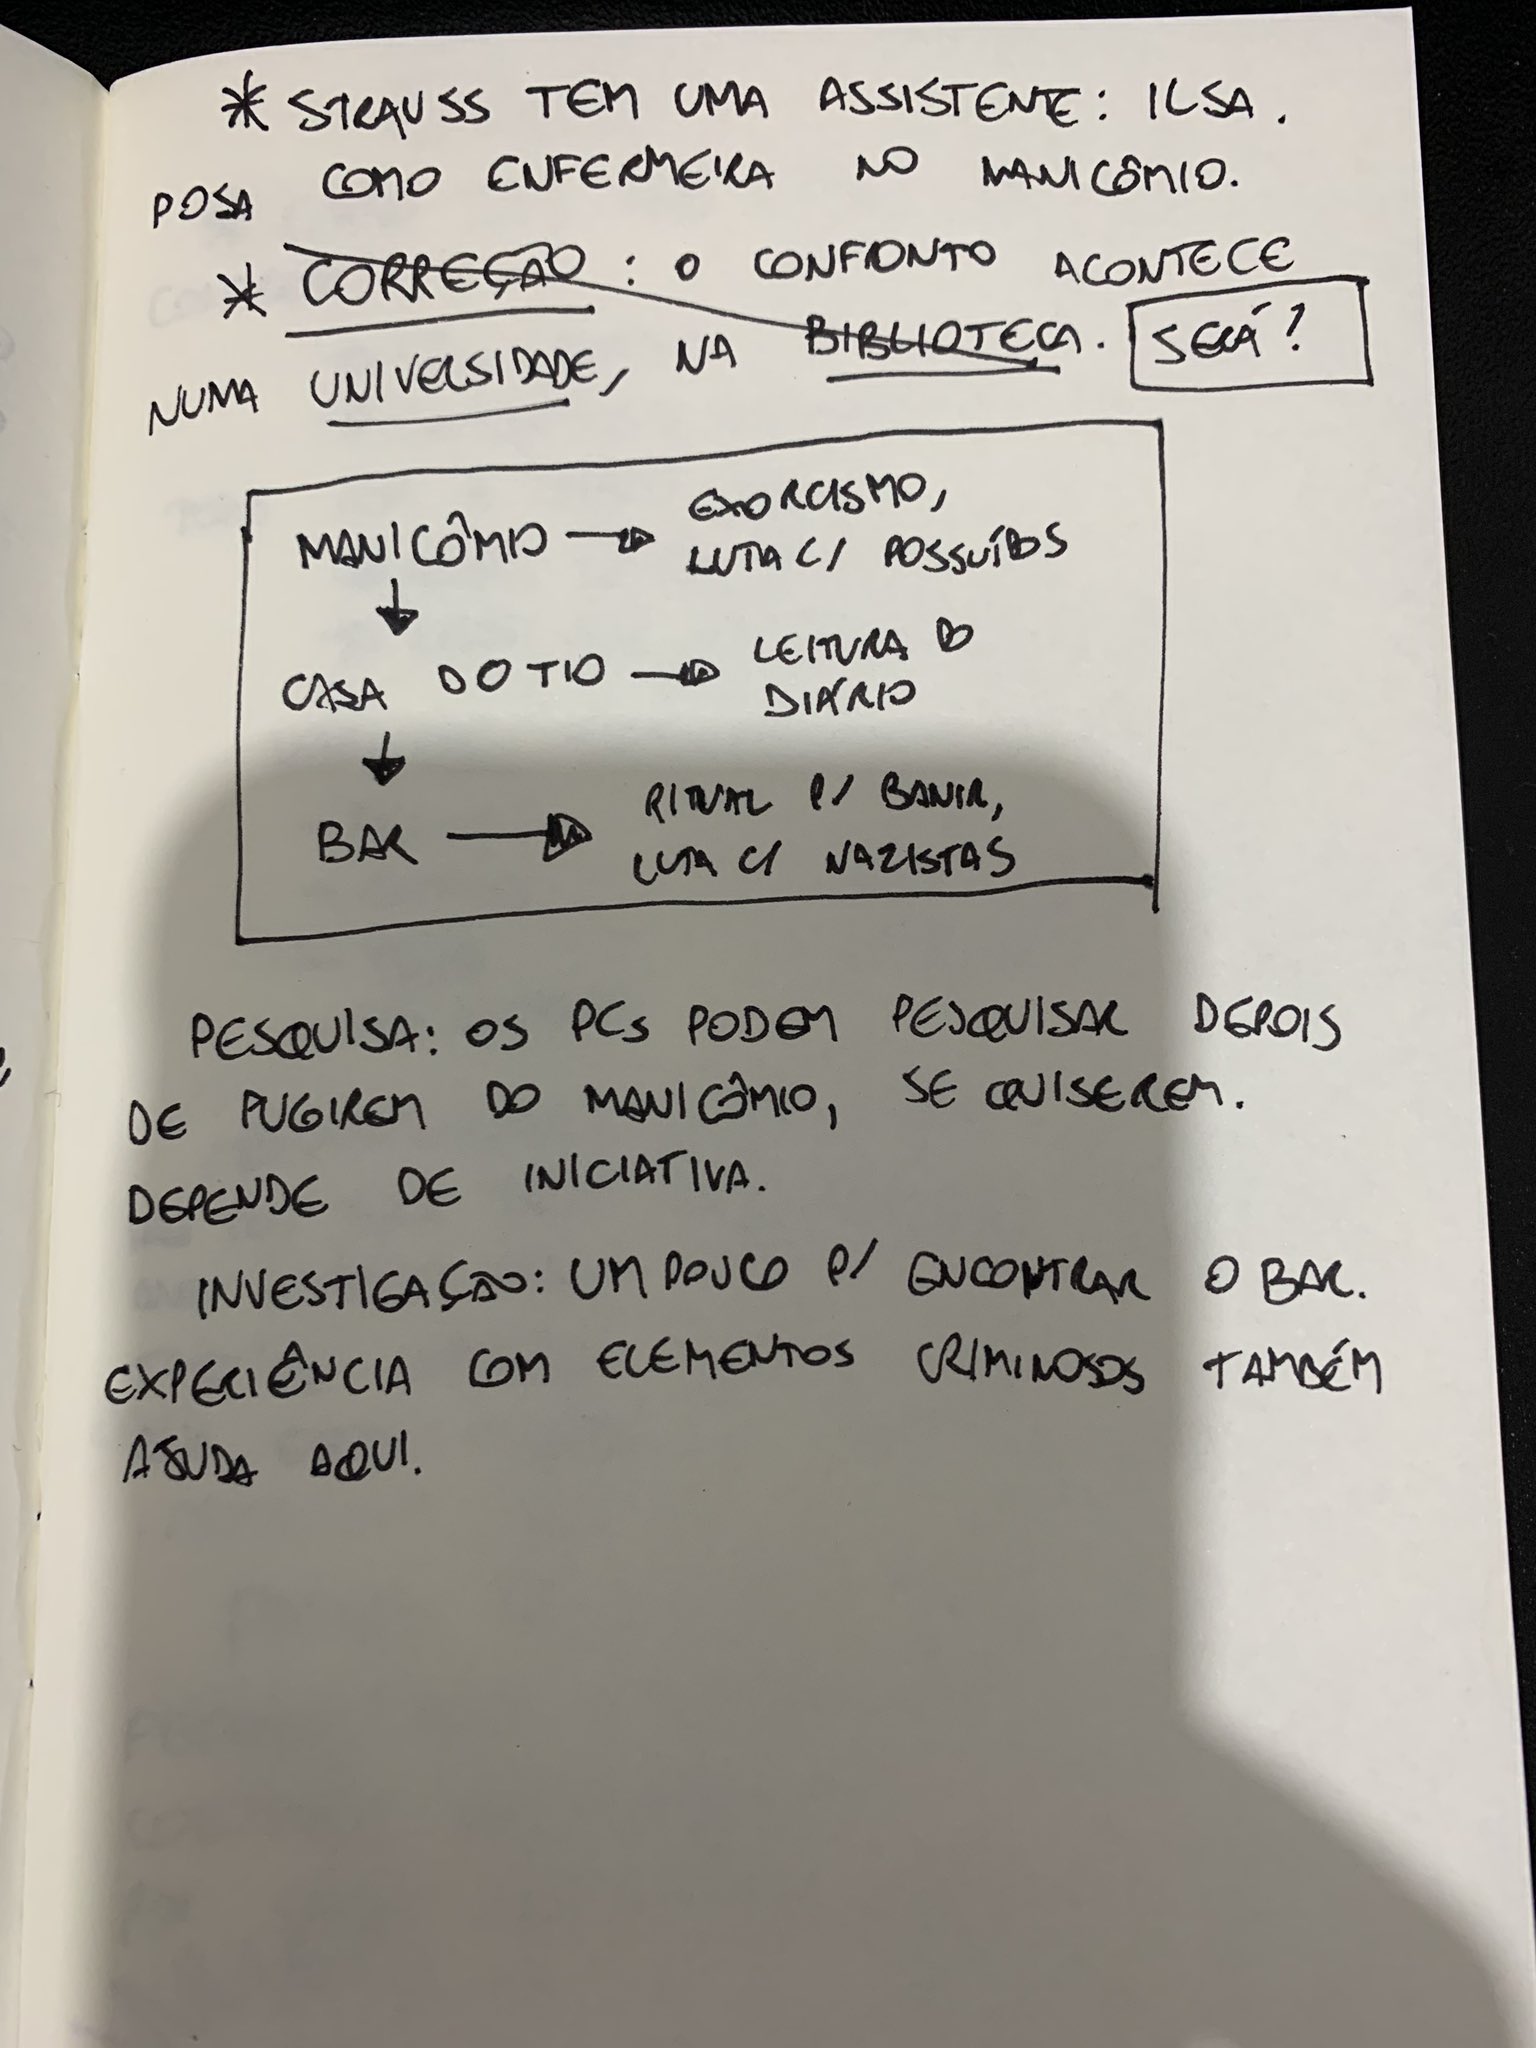 * STRAUSS TEM UMA ASSISTENTE: ILSA.
POSA COMO ENFERMEIRA NO MANICÔMIO.
* CORREÇÃO: O CONFRONTO ACONTECE
NUMA UNIVERSIDADE, NA BIBLIOTECA. SERÁ?
MANICÔMIO → EXORCISMO,
LUTA C/ POSSUÍDOS
↓
CASA DO TIO → LEITURA DO
DIÁRIO
↓
BAR → RITUAL P/ BANIR,
LUTA C/ NAZISTAS
PESQUISA: OS PCs PODEM PESQUISAR DEPOIS
DE FUGIREM DO MANICÔMIO, SE QUISEREM.
DEPENDE DE INICIATIVA.
INVESTIGAÇÃO: UM POUCO P/ ENCONTRAR O BAR.
EXPERIÊNCIA COM ELEMENTOS CRIMINOSOS TAMBÉM
AJUDA AQUI.